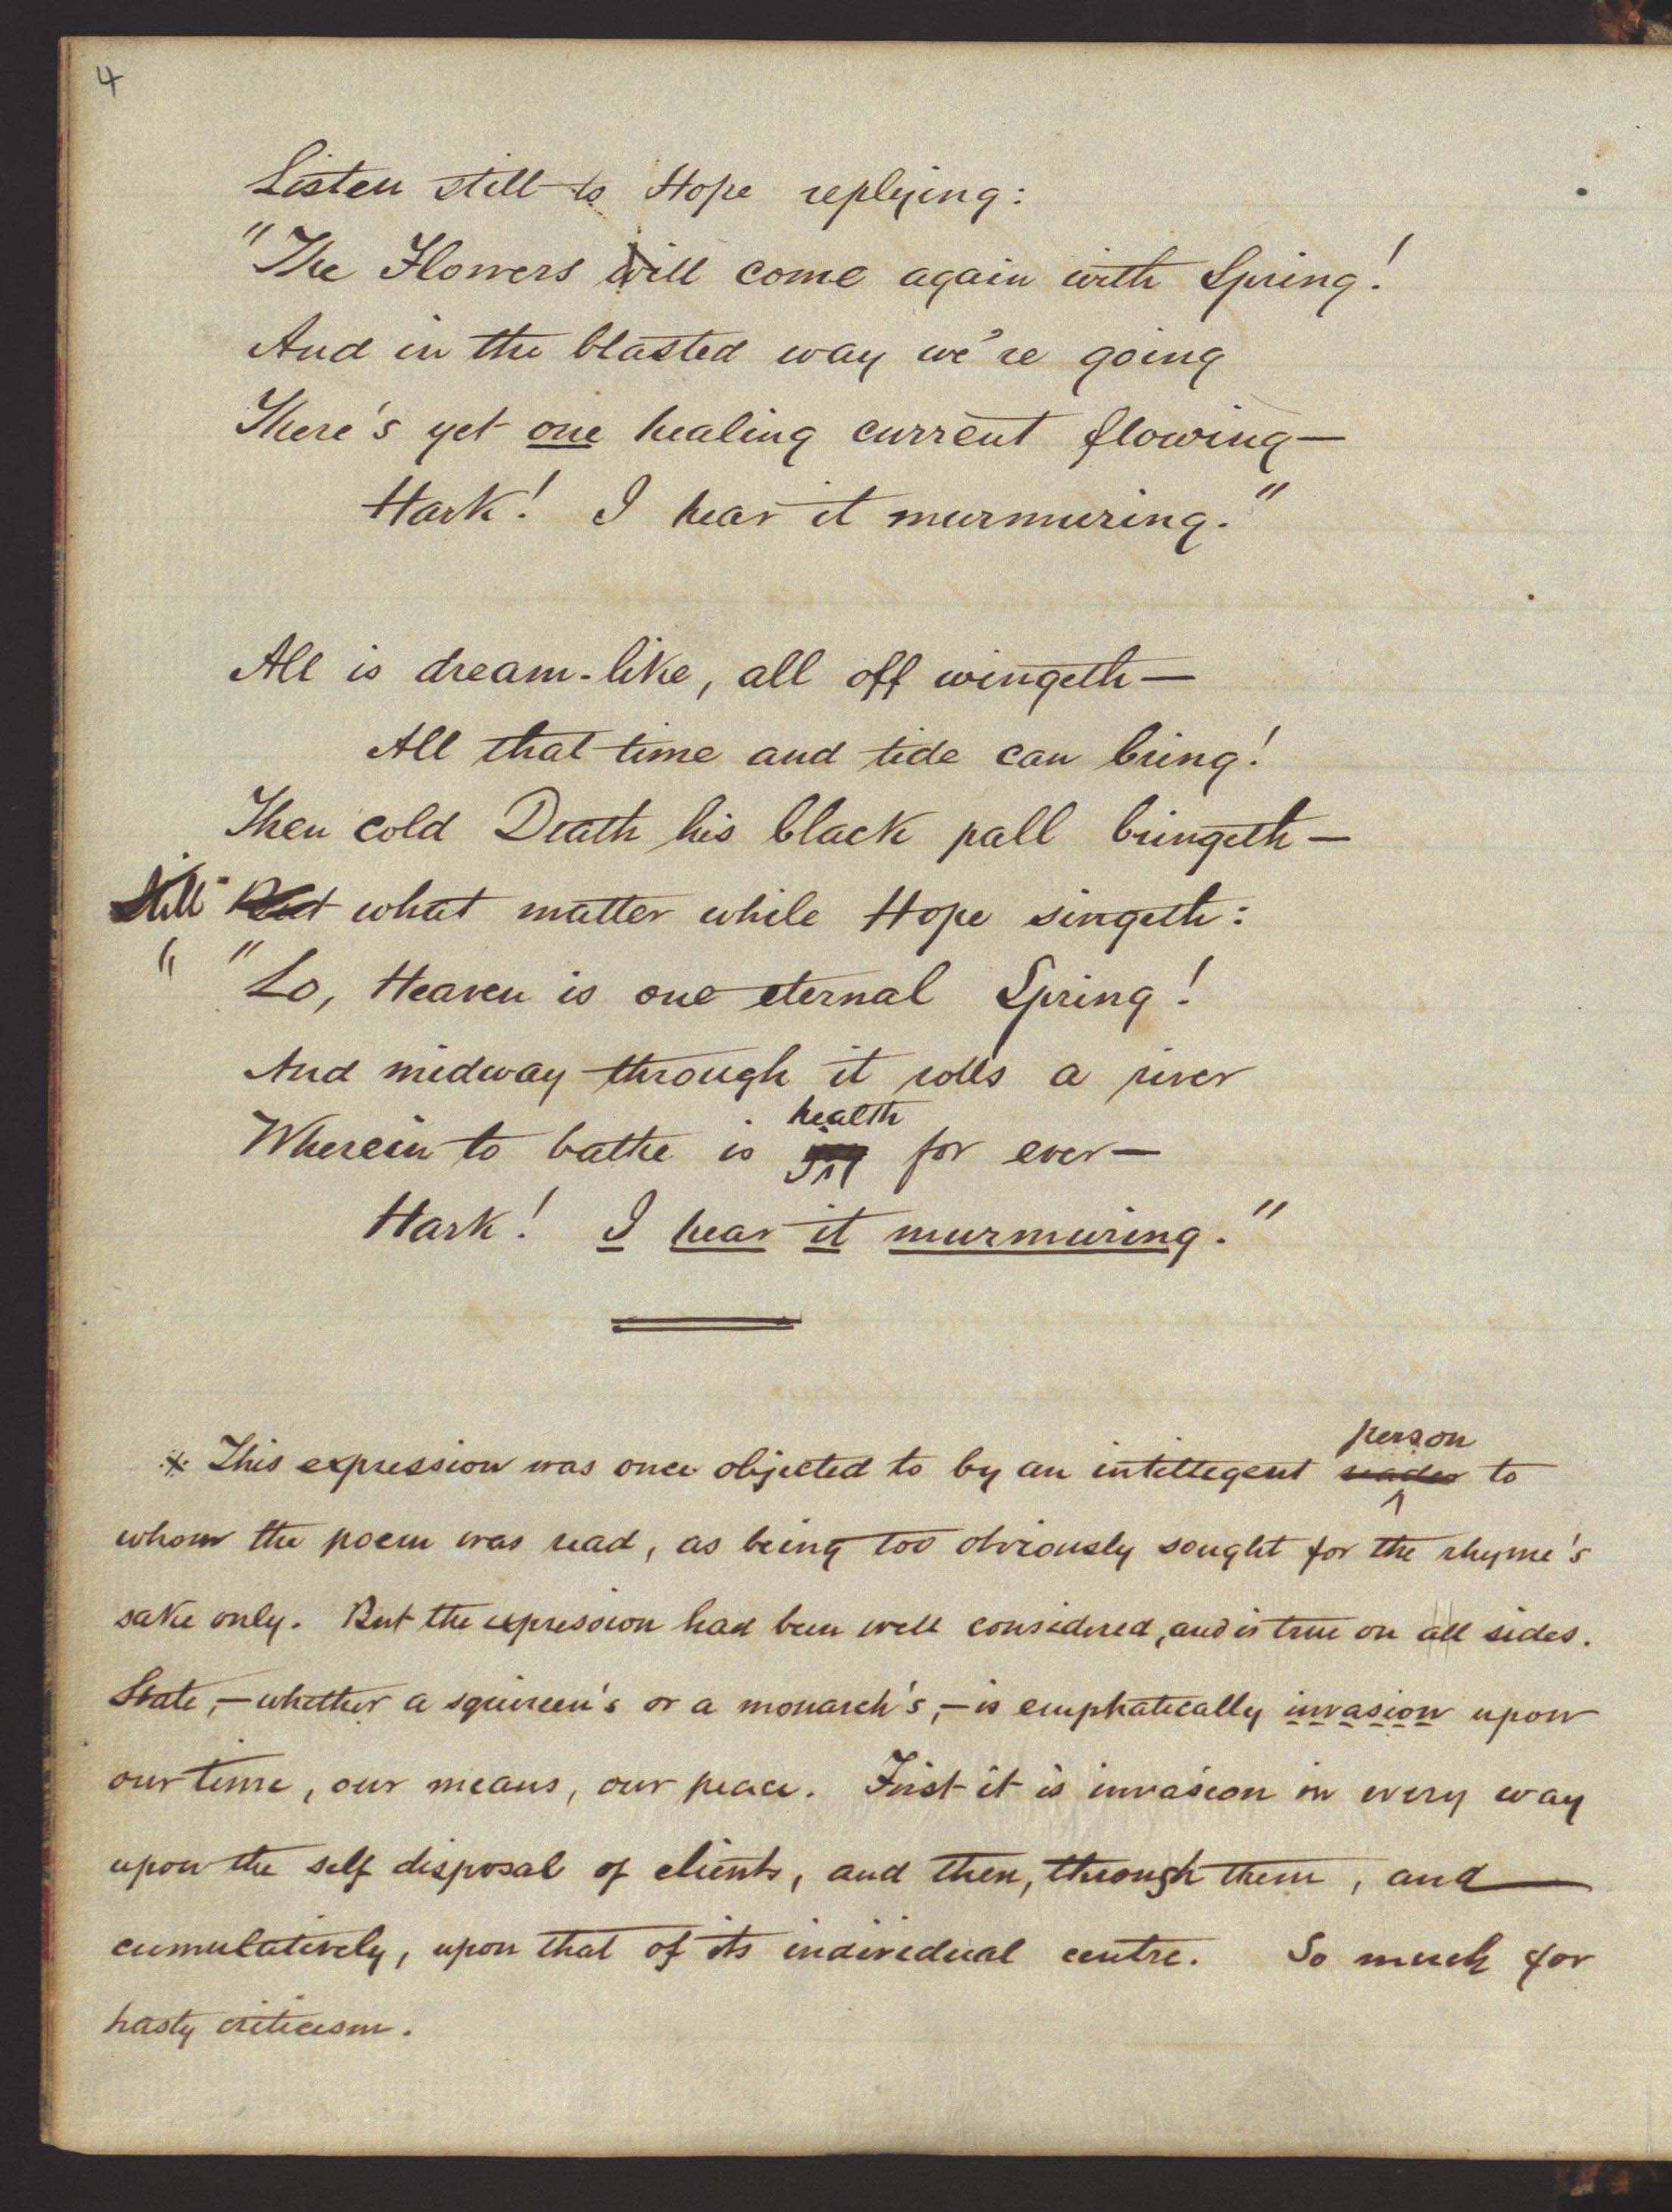 4
Listen still to Hope replying:
"The Flowers will come again with Spring!
And in the blasted way we're going
There's yet one healing current flowing—
Hark! I hear it murmuring."
All is dream-like, all off wingeth—
All that time and tide can bring!
Then cold Death his black pall bringeth—
Still But what matter while Hope singeth:
" "Lo, Heaven is one eternal Spring!
And midway through it rolls a river
health
Wherein to bathe is for ever—
Hark! I hear it murmuring."
person
* This expression was once objected to by an intellegent reader to
^
whom the poem was read, as being too obviously sought for the rhyme's
sake only. But the expression had been well considered, and is true on all sides.
State,—whether a squireen's or a monarch's,—is emphatically invasion upon
our time, our means, our peace. First it is invasion in every way
upon the self disposal of clients, and then, through them, and
cumulatively, upon that of its individual centre. So much for
hasty criticism.